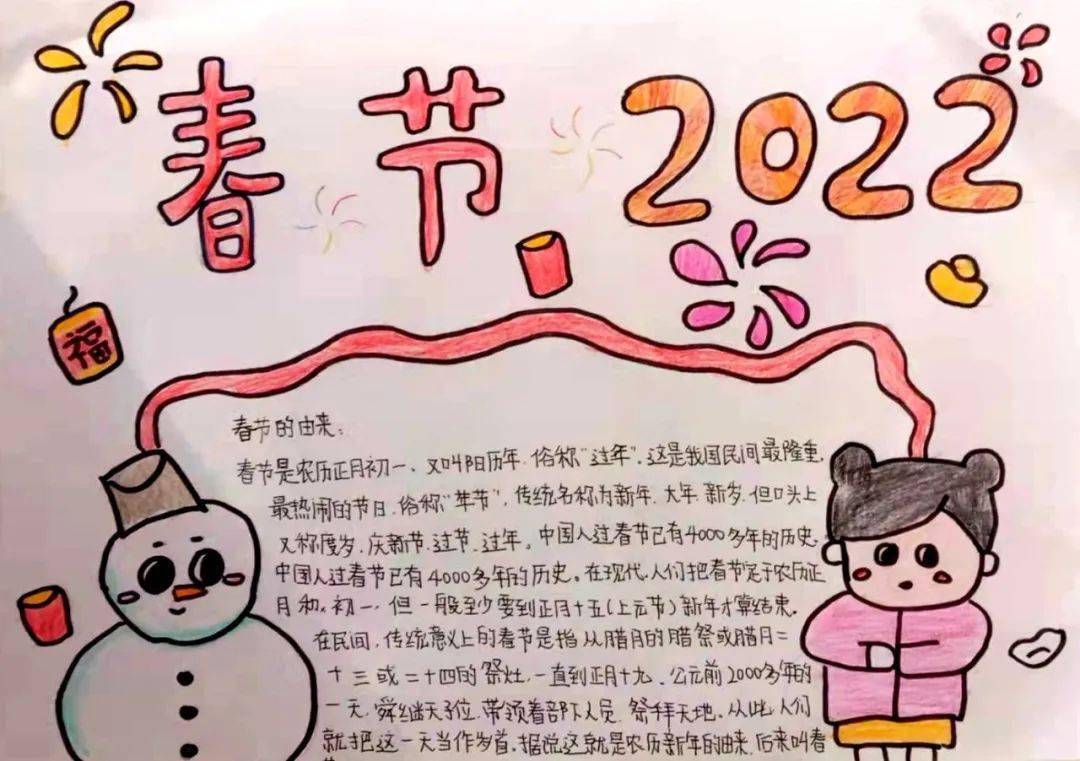 春节 2022
福
春节的由来:
春节是农历正月初一、又叫阳历年.俗称“过年”.这是我国民间最隆重
最热闹的节日.俗称“年节”,传统名称为新年、大年、新岁.但口头上
又称度岁、庆新节、过节、过年。中国人过春节已有4000多年的历史.
中国人过春节已有4000多年的历史。在现代,人们把春节定于农历正
月和、初一、但一般至少要到正月十五(上元节)新年才算结束。
在民间,传统意义上的春节是指从腊月的腊祭或腊月二
十三或二十四的祭灶,一直到正月十九、公元前2000多年的
一天,舜继天子位,带领着部下人员,祭拜天地.从此,人们
就把这一天当作岁首,据说这就是农历新年的由来,后来叫春